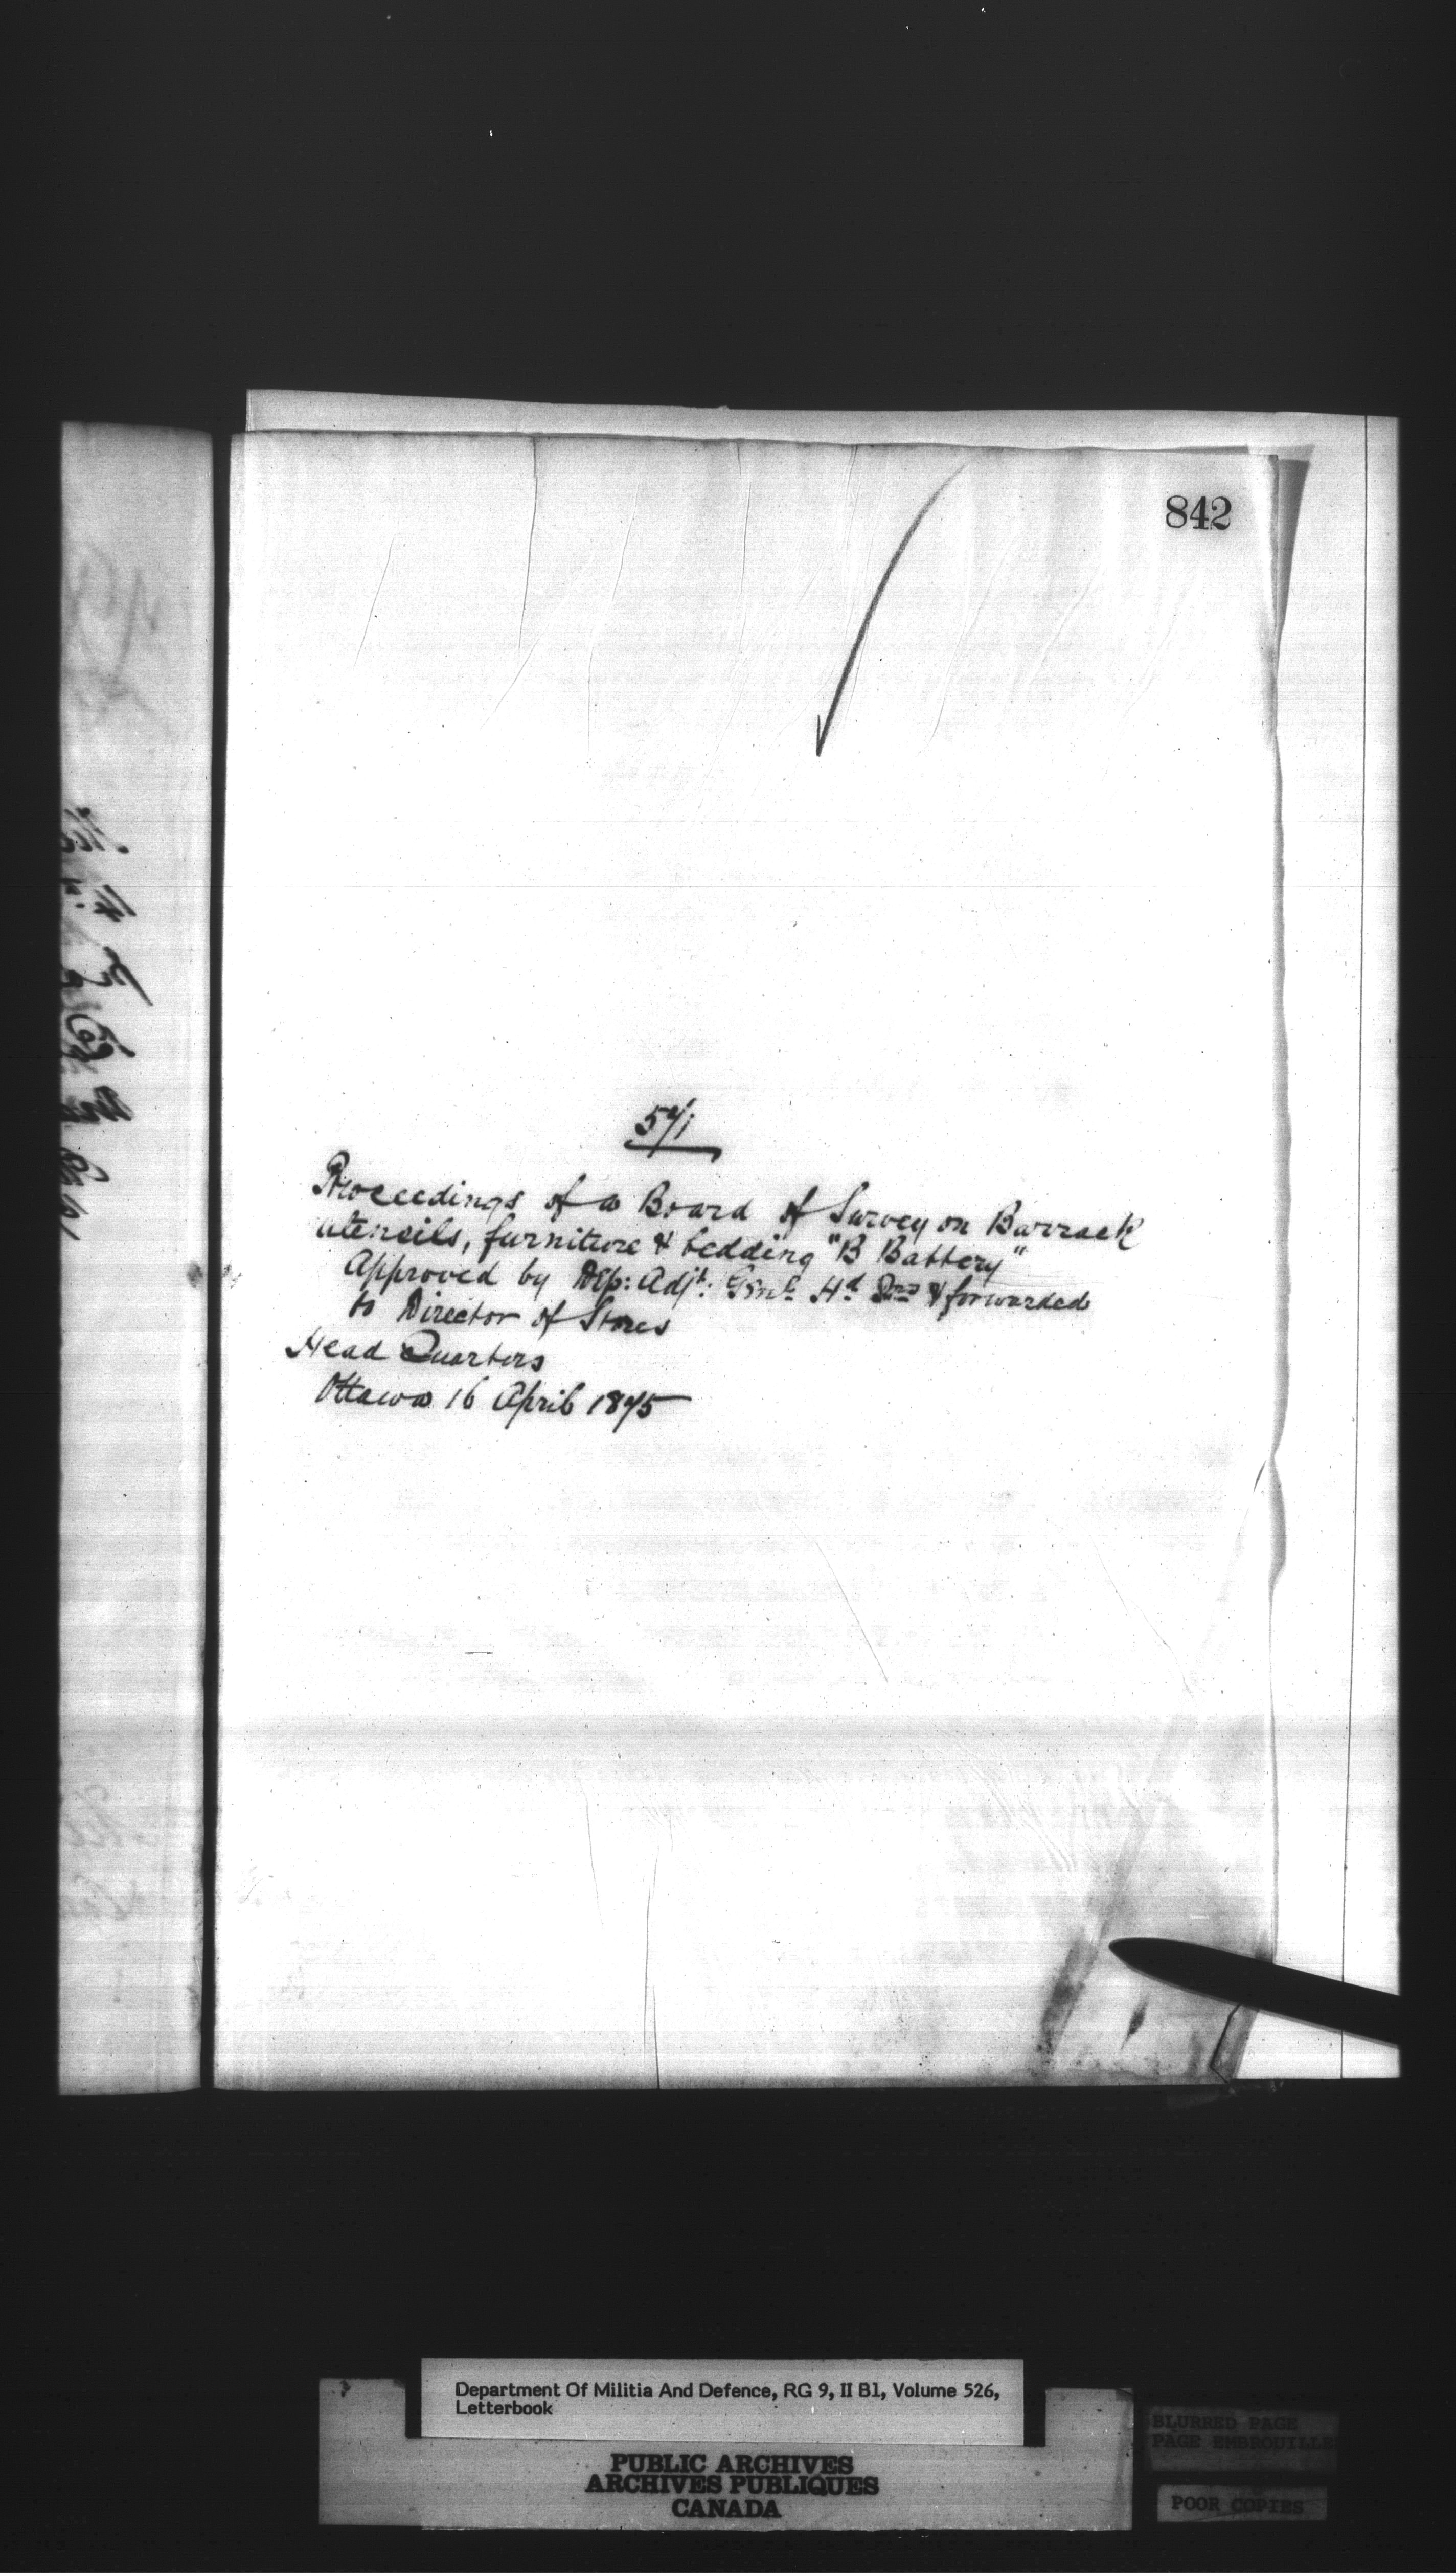 842
571
Proceedings of a Board of Survey on Barrack
utensils, furniture & bedding "B Battery"
Approved by Dep: Adjt: Genl Hd Qrs & forwarded
to Director of Stores
Head Quarters
Ottawa 16 April 1875
Department Of Militia And Defence, RG 9, II B1, Volume 526,
Letterbook
PUBLIC ARCHIVES
ARCHIVES PUBLIQUES
CANADA
BLURRED PAGE
PAGE EMBROUILLE
POOR COPIES